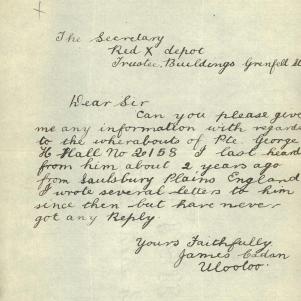 The Secretary
Red X depot
Trustee Buildings Grenfell St
Dear Sir
Can you please give
me any information with regards
to the wherabouts of Pte. George
H Hall No 2158 I last heard
from him about 2 years ago
from Saulsbury Plains England
I wrote several letters to him
since then but have never
got any Reply
Yours Faithfully
James
Ulooloo.